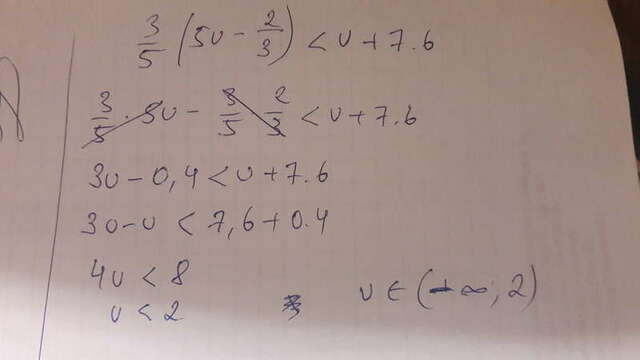 3/5 (5u - 2/3) < u + 7.6
3/5 · 5u - 3/5 · 2/3 < u + 7.6
3u - 0,4 < u + 7.6
3u - u < 7,6 + 0.4
4u < 8
u < 2 u ∈ (-∞; 2)